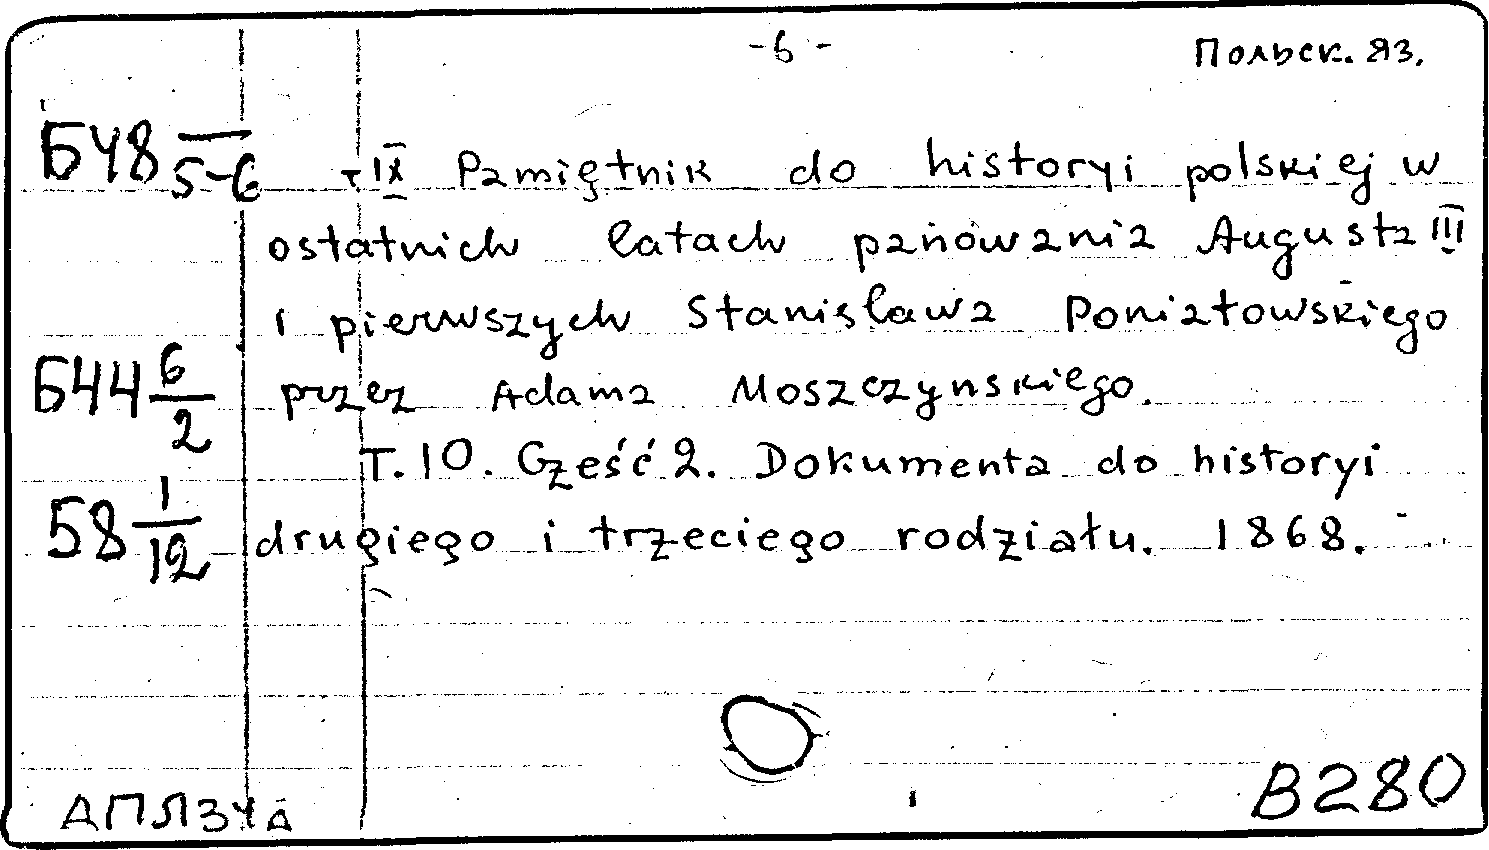 -6-
Польск. яз.
Б48 5-6
т IX Pamiętnik do historyi polskiej w
ostatnich latach panowania Augusta III
i pierwszych Stanisława Poniatowskiego
Б44 6/2 przez Adama Moszczynskiego.
T. 10. Cześć 2. Dokumenta do historyi
58 1/12 drugiego i trzeciego rodziału. 1868.
B280